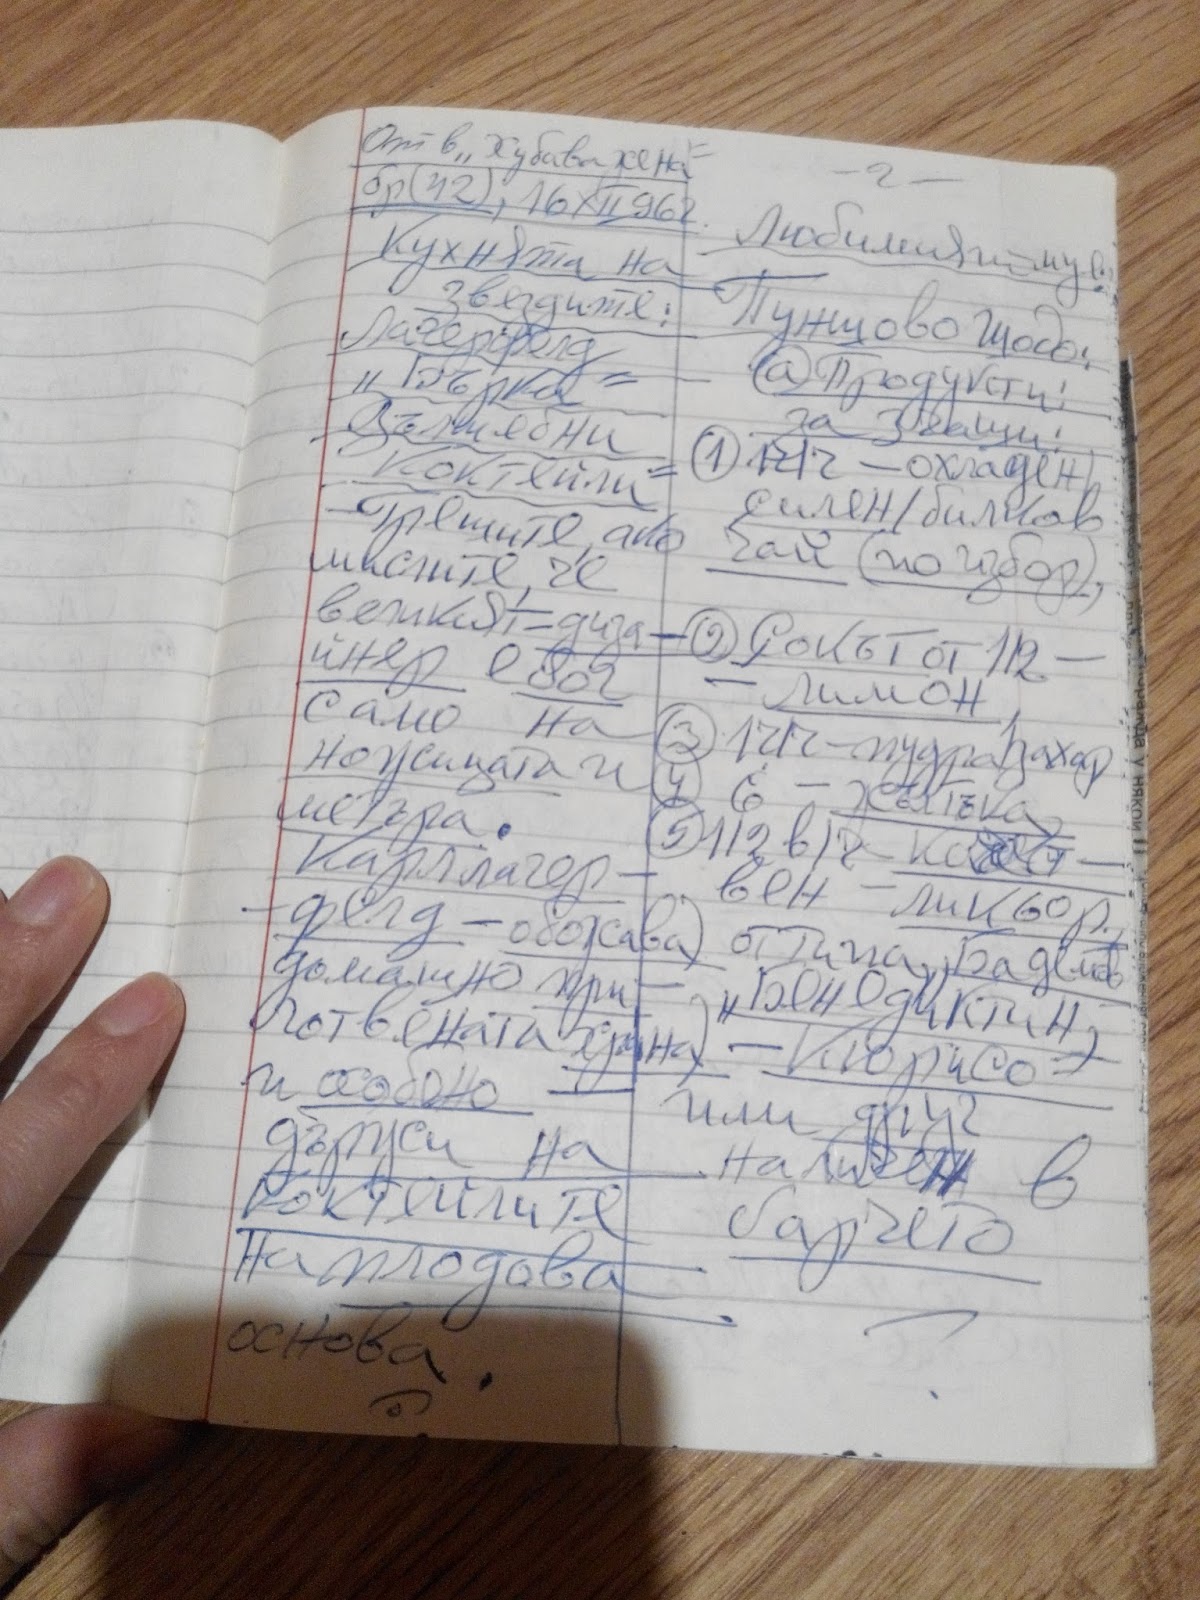 От в. "Хубава жена"
бр(42), 16 XII 96г.
Кухнята на
звездите:
Лагерфелд
"Бърка"
Вълшебни
коктейли"
Грешите, ако
мислите, че
великият диза-
йнер е бог
само на
ножицата и
метъра.
Карл Лагер-
-фелд - обожава)
домашно при-
готвената храна)
и особено
държи на
коктейлите
На плодова
основа.
- 2 -
Любимият му е:
Пунцово Щодо:
(а) Продукти:
за 3 чаши:
① 1ч/ч - охладен,
силен/билков
чай (по избор),
② Сокът от 1/2 -
- лимон,
③ 1ч/ч - пудра захар
④ 6 - жълтъка,
⑤ 1/2 в/ч
вен - ликьор,
от типа "Бадемов
"Бенедиктин,
или друг
наличен в
барчето